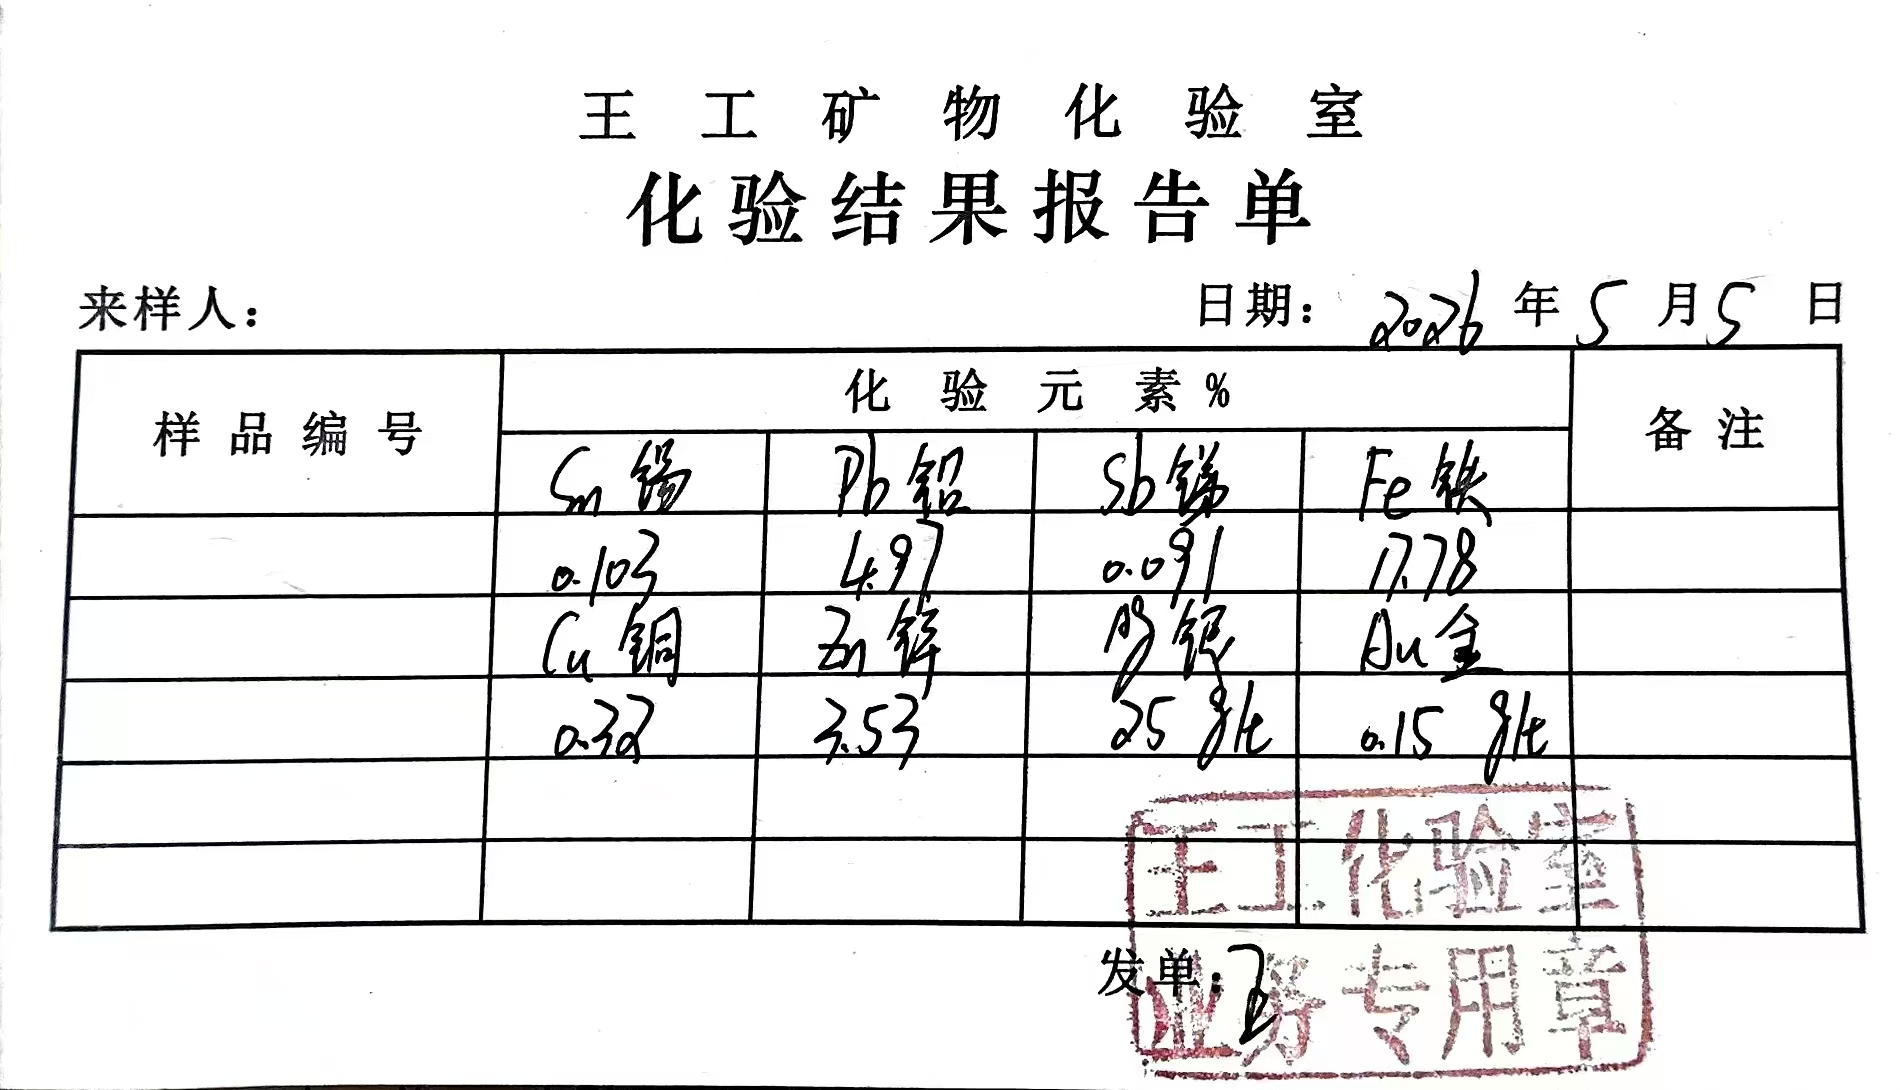 王工矿物化验室
化验结果报告单
来样人： 日期： 2026 年 5 月 5 日
样品编号 化验元素% 备注
Sn 锡 Pb 铅 Sb 锑 Fe 铁
0.103 4.97 0.091 17.78
Cu 铜 Zn 锌 Ag 银 Au 金
0.32 3.53 25 g/t 0.15 g/t
王工化验室
发单：王
业务专用章